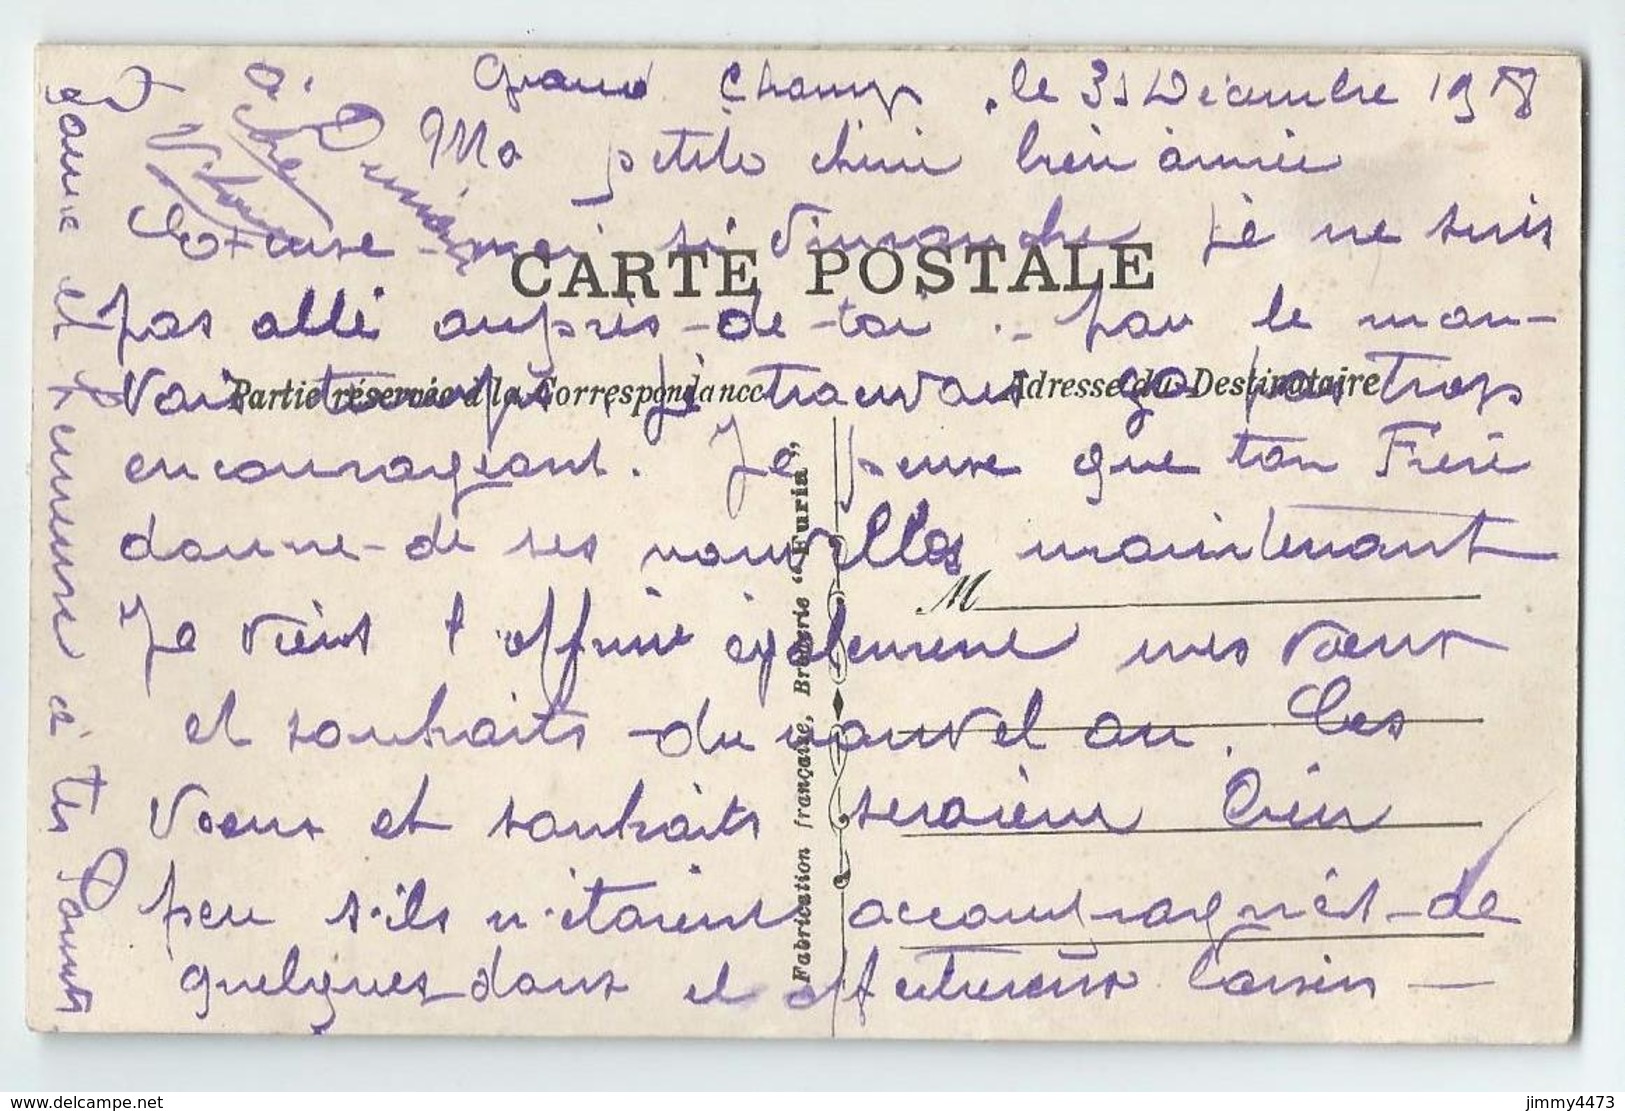 Grand Champ, le 31 Décembre 1918
Ma petite chérie bien aimée
Excuse-moi si Dimanche je ne suis
CARTE POSTALE
pas allé auprès-de-toi par le mau-
vais temps, je trouvais ça pas trop
Partie réservée à la Correspondance
Adresse du Destinataire
encourageant. Je pense que ton Frère
donne-de ses nouvelles maintenant
M
Je viens t'offrir également mes vœux
et souhaits du nouvel an. Ces
vœux et souhaits seraient bien
peu s'ils n'étaient accompagnés-de
quelques doux et affectueux baisers
Fabrication française, Broderie "Furia"
Jeanne et Femme à tes Parents
à Dimanche
Victor
jimmy4473
delcampe.net